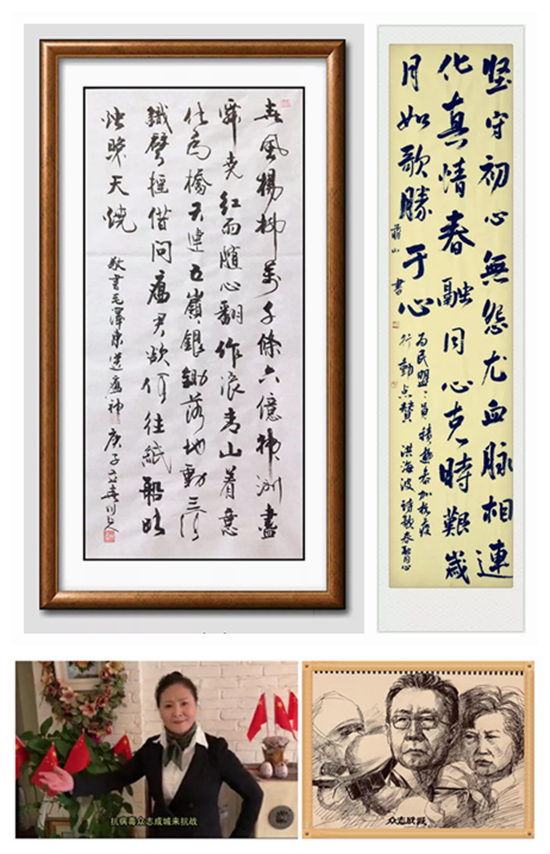 春風楊柳萬千條六億神洲盡
舜堯紅雨隨心翻作浪青山着意
化為橋天連五嶺銀鋤落地動三河
鐵臂搖借問瘟君欲何往紙船明
燭照天燒
敬書毛澤東送瘟神 庚子立春
坚守初心無怨尤血脉相連
化真情春融同心克時艱歲
月如歌勝于心
山書
为民盟盟員積極参加抗疫
行動点赞 洪海波诗歌春融同心
抗病毒众志成城来抗战
众志战疫